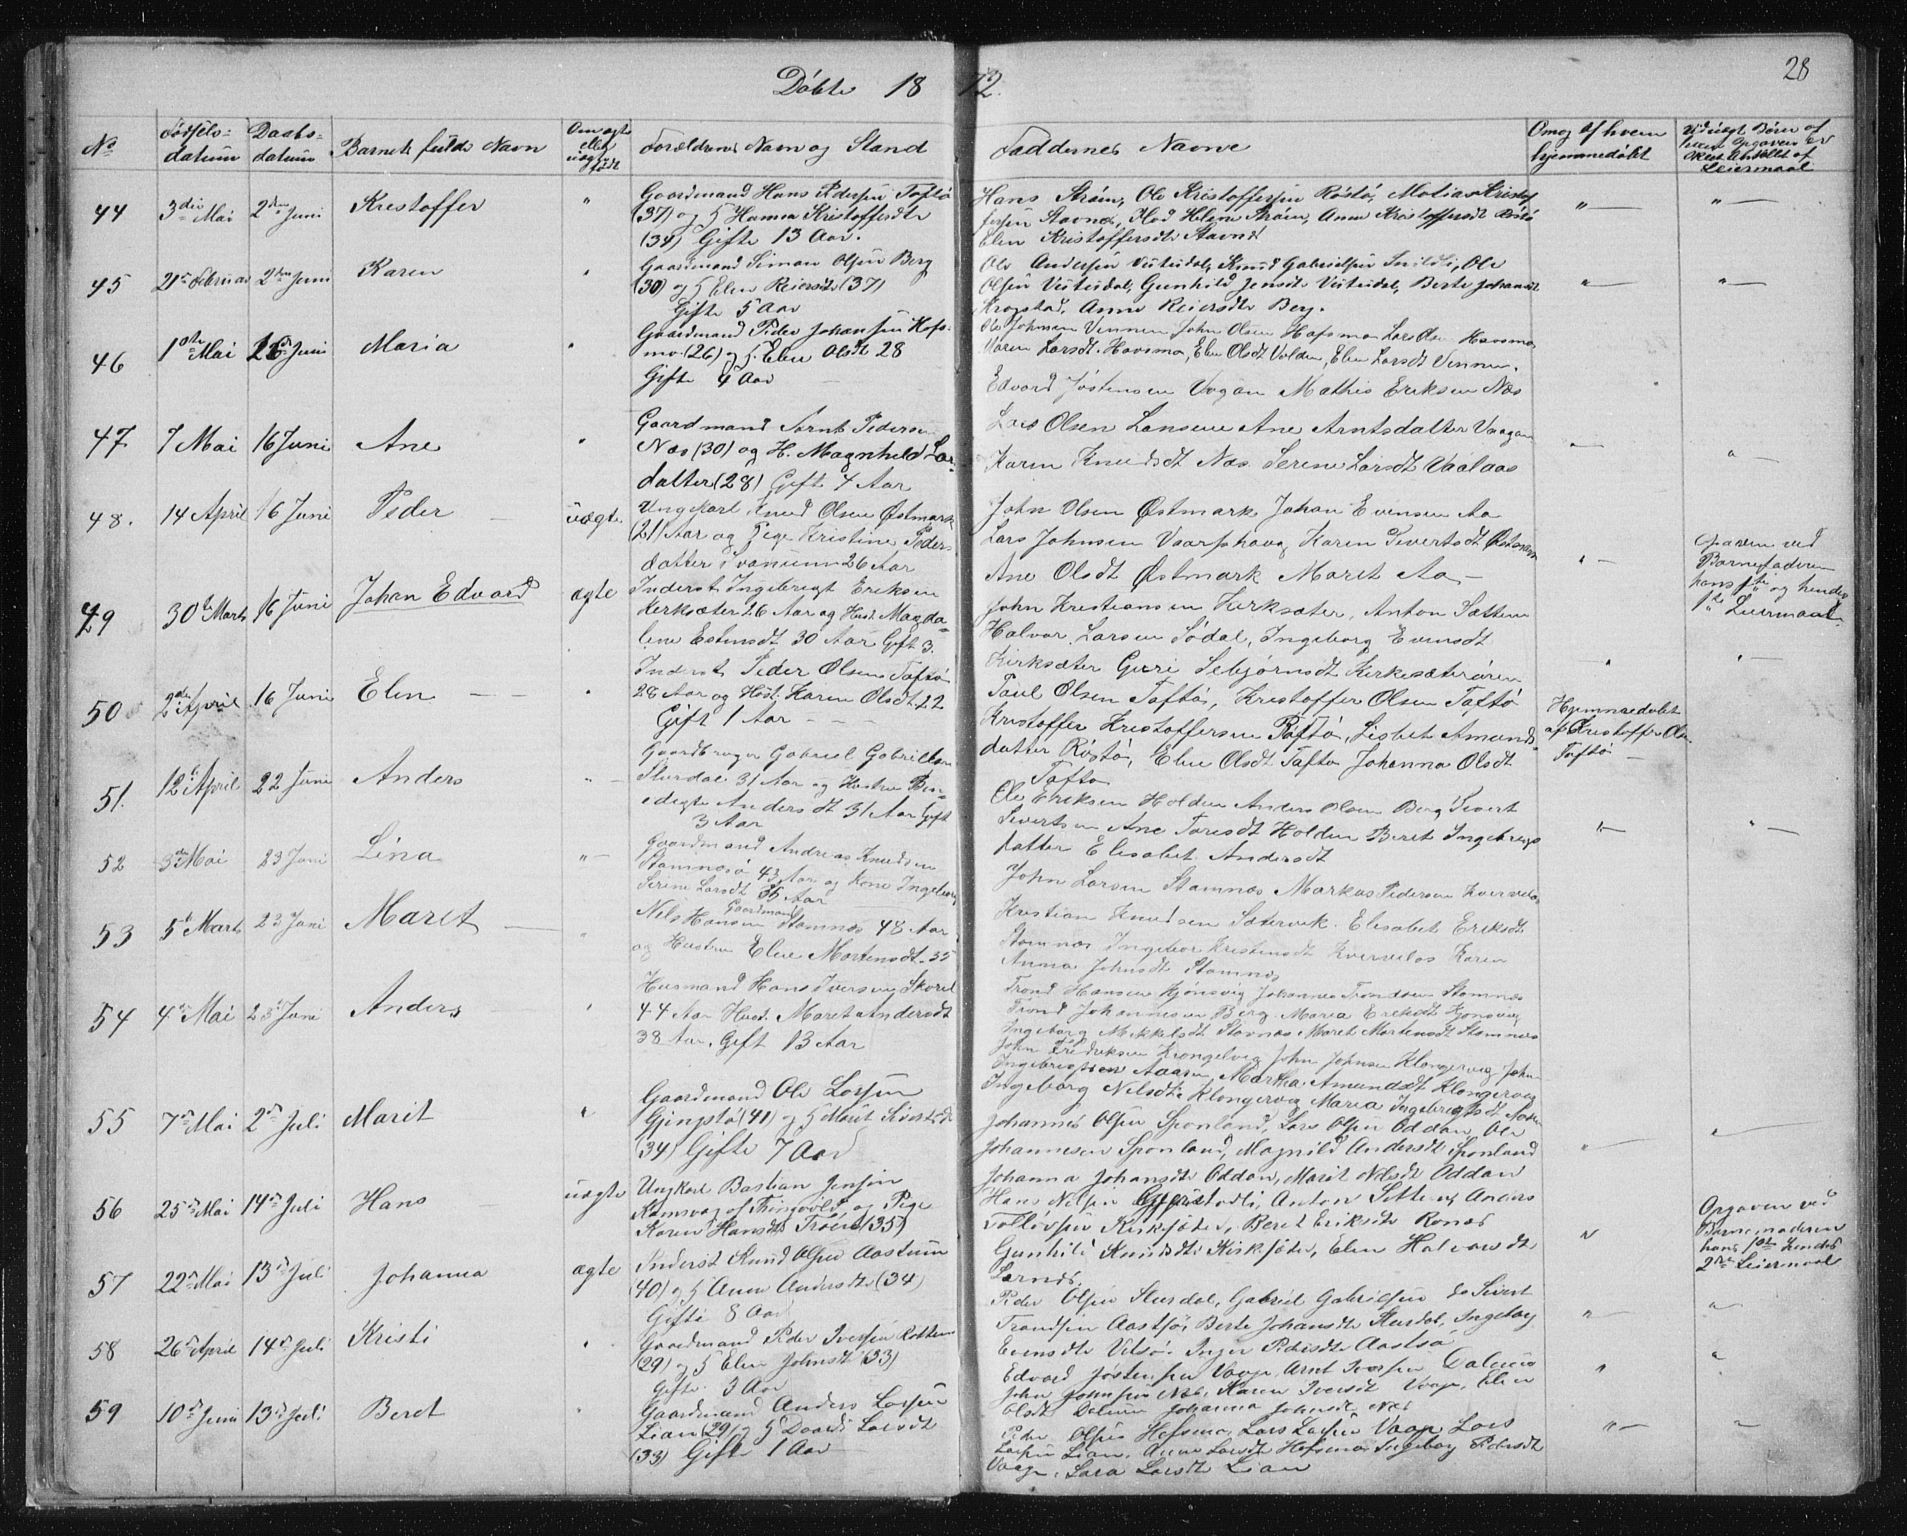 Døbte 18 72.
28
No
Fødsels-
datum
Daabs-
datum
Barnets fulde Navn
Om ægte
eller
uægte
født
Forældrenes Navn og Stand
Faddernes Navne
Om og af hvem
hjemmedøbt
44 3die Mai 2den Juni Kristoffer "
Gaardmand Hans Pedersen Taftø
(37) og H Hanna Kristoffersdtr
(34) Gifte 13 Aar.
Hans Strøm, Ole Kristoffersen Røstø, Matias Kristof
fersen Stavnes, Mad Helene Strøm, Anne Kristoffersdt Røstø
Elen Kristoffersdtr Stavnes
45 21de Februar 2den Juni Karen "
Gaardmand Simon Olsen Berg
(30) og H Elen Reiersdtr (37)
Gifte 5 Aar
Ole Andersen Vitsødal, Knud Gabrielsen Snildli, Ole
Olsen Vitsødal, Gunhild Jensdtr Vitsødal, Berte Johansdtr
Krogstad, Anne Reiersdtr Berg.
46 1ste Mai 26de Juni Maria "
Gaardmand Peder Johansen Hofs-
mo (26) og H. Elen Olsdt 28
Gifte 4 Aar
Ole Johnsen Vennen John Olsen Hafsmo Lars Olsen Havsmo
Maren Larsdt. Havsmo, Elen Olsdt Volden, Elen Larsdt Vennen.
47. 7 Mai 16 Juni Ane "
Gaardmand Arnt Pedersen
Næs (30) og H. Magnhild Lar-
datter (28) Gift 4 Aar
Edvard Jøstensen Vagan Mathis Eriksen Næs
Lars Olsen Lensvu Ane Arntsdatter Vaagan
Karen Knudsdt Næs Serene Larsdt Vaalaas
48. 14 April 16 Juni Peder uægte
Ungkarl Knud Olsen Østmark
(21) Aar og Pige Kristine Peders
datter Svanum 26 Aar
John Olsen Østmark Johan Evensen Aa
Lars Johnsen Vaarshaug Karen Sivertsdt Østmark
Ane Olsdt Østmark Maret Aa
Opgaven ved
Barnefaderen
hans 1ste og hendes
1ste Leiermaal
49 30te Marts 16 Juni Johan Edvard ægte
Inderst Ingebrigt Eriksen
Kerksæter 26 Aar og Hust Magda-
lene Estensdt 30 Aar Gift 3.
John Kristiansen Kerksæter, Anton Sættem
Halvor Larsen Sødal, Ingeborg Evensdt
Kirksæter Guri Sebjørnsdt Kerkesæterøren
50 2den April 16 Juni Elen "
Inderst Peder Olsen Taftø
28 Aar og Hust: Karen Olsdt. 22
Gift 1 Aar
Paul Olsen Taftø, Kristoffer Olsen Taftø
Kristoffer Kristoffersen Røstø, Lisbet Amunds-
datter Røstø, Elen Olsdt Taftø Johanna Olsdt
Taftø
Hjemmedøbt
af Kristoffer Olsen
Taftø
51. 12te April 22 Juni Anders "
Gaardbruger Gabriel Gabrielsen
Slurdal 31 Aar og Hustru Ben-
edigte Andersdt 31 Aar Gift
3 Aar
Ole Eriksen Holden Anders Olsen Berg Sivert
Sivertsen Ane Toresdt Holden Beret Ingebrigs
datter Elisabet Andersdt
52 3die Mai 23 Juni Lina "
Gaardmand Andreas Knudsen
Stamnesø 43 Aar og Kone Ingeborg
Serine Larsdt 36 Aar
John Larsen Stamnes Markus Pedersen Kvervelos
Kristian Knudsen Sætervik. Elisabet Eriksdt
Stamnes Ingebor Kristensdt Kvervelos Karen
Anna Johnsdt Stamnes
53 5te Marts 23 Juni Maret "
Gaardmand
Nels Hansen Stamnes 48 Aar
og Hustru Elen Mortensdt. 35
Trond Hansen Kjønsvig Johannes Trondsen Stamnes
Trond Johannesen Berg Maria Eriksdt Kjønsvig
Ingeborg Mikkelsdt Stamnes Maret Mortensdt Stamnes
54 4de Mai 23de Juni Anders "
Husmand Hans Iversen Skorel
44 Aar Hust. Maret Andersdt
38 Aar. Gift 13 Aar
John Fredriksen Krongelvig John Johnsen Klongervag John
Ingebrigtsen Aasen Martha Amundsdt Klongervag
Ingeborg Nelsdtr Klongervag Maria Ingebrigtsdt Aasen
55 7de Mai 2den Juli Marit "
Gaardmand Ole Larsen
Gjengstø (41) og H Marit Sivertsdt
(34) Gifte 7 Aar
Johannes Olsen Sponland, Lars Olsen Oddan Ole
Johannesen Sponland, Magnild Andersdt Sponland
Johanna Johansdt Oddan, Marit Nilsdt Oddan
56 25de Mai 14de Juli Hans uægte
Ungkarl Bastian Jensen
Ramsvag af Thingvold og Pige
Karen Hansdt Trøen (35)
Hans Nilsen Anton Sættem Anders
Tolløfsen Kirksæter, Beret Eriksdtr Rones
Gunhild Knudsdtr Kirksæter, Elen Halvorsdt
Opgaven ved
Barnemoderen
hans 1ste hendes
2den Leiermaal
57 22de Mai 13de Juli Johanna ægte
Inderst Knud Olsen Aastum
(40) og H Anne Andersdtr (34)
Gifte 8 Aar
Peder Olsen Slurdal, Gabriel Gabrielsen do Sivert
Trondsen Aastsø, Berte Johansdtr Slurdal, Ingeborg
Evensdtr Vitsø. Inger Pedersdtr Aastsø
58 26de April 14de Juli Kristi "
Gaardmand Peder Iversen Rottem
(29) og H Elen Johnsdt (33)
Gifte 3 Aar
Edvard Jøstensen Vaage, Arnt Iversen Dalum
John Johnsen Næs, Karen Iversdt Vaage, Elen
Olsdt Dalum Johanna Johnsdt Næs
59 10de Juni 13de Juli Beret "
Gaardmand Anders Larsen
Lian (29) og H Dordi Larsdt
(33) Gift 1 Aar
Peder Olsen Hofsmo, Lars Larsen Vaage Lars
Larsen Lian, Anne Larsdt Hofsmo Ingeborg Pedersdt
Vaage, Sara Larsdt Lian